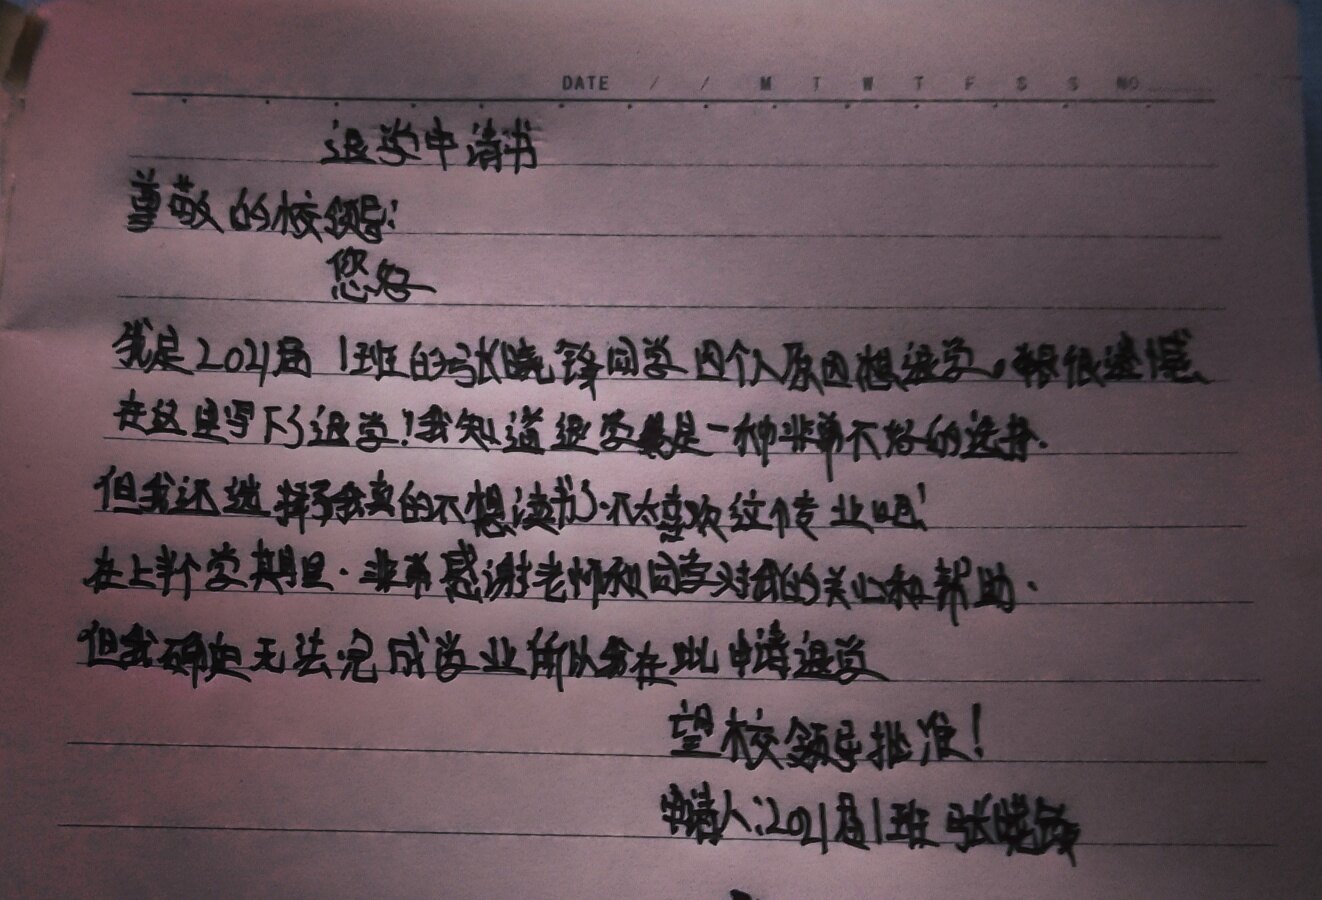 DATE / / M T W T F S S NO
退学申请书
尊敬的校领导:
您好
我是2021届1班的张晓锋同学因个人原因想退学。很遗憾
在这里写下了退学!我知道退学是一种非常不好的选择.
但我还选择了我真的不想读书了.不太喜欢这个专业吧!
在上半个学期里.非常感谢老师和同学对我的关心和帮助.
但我确定无法完成学业所以我在此申请退学
望校领导批准!
申请人:2021届1班 张晓锋